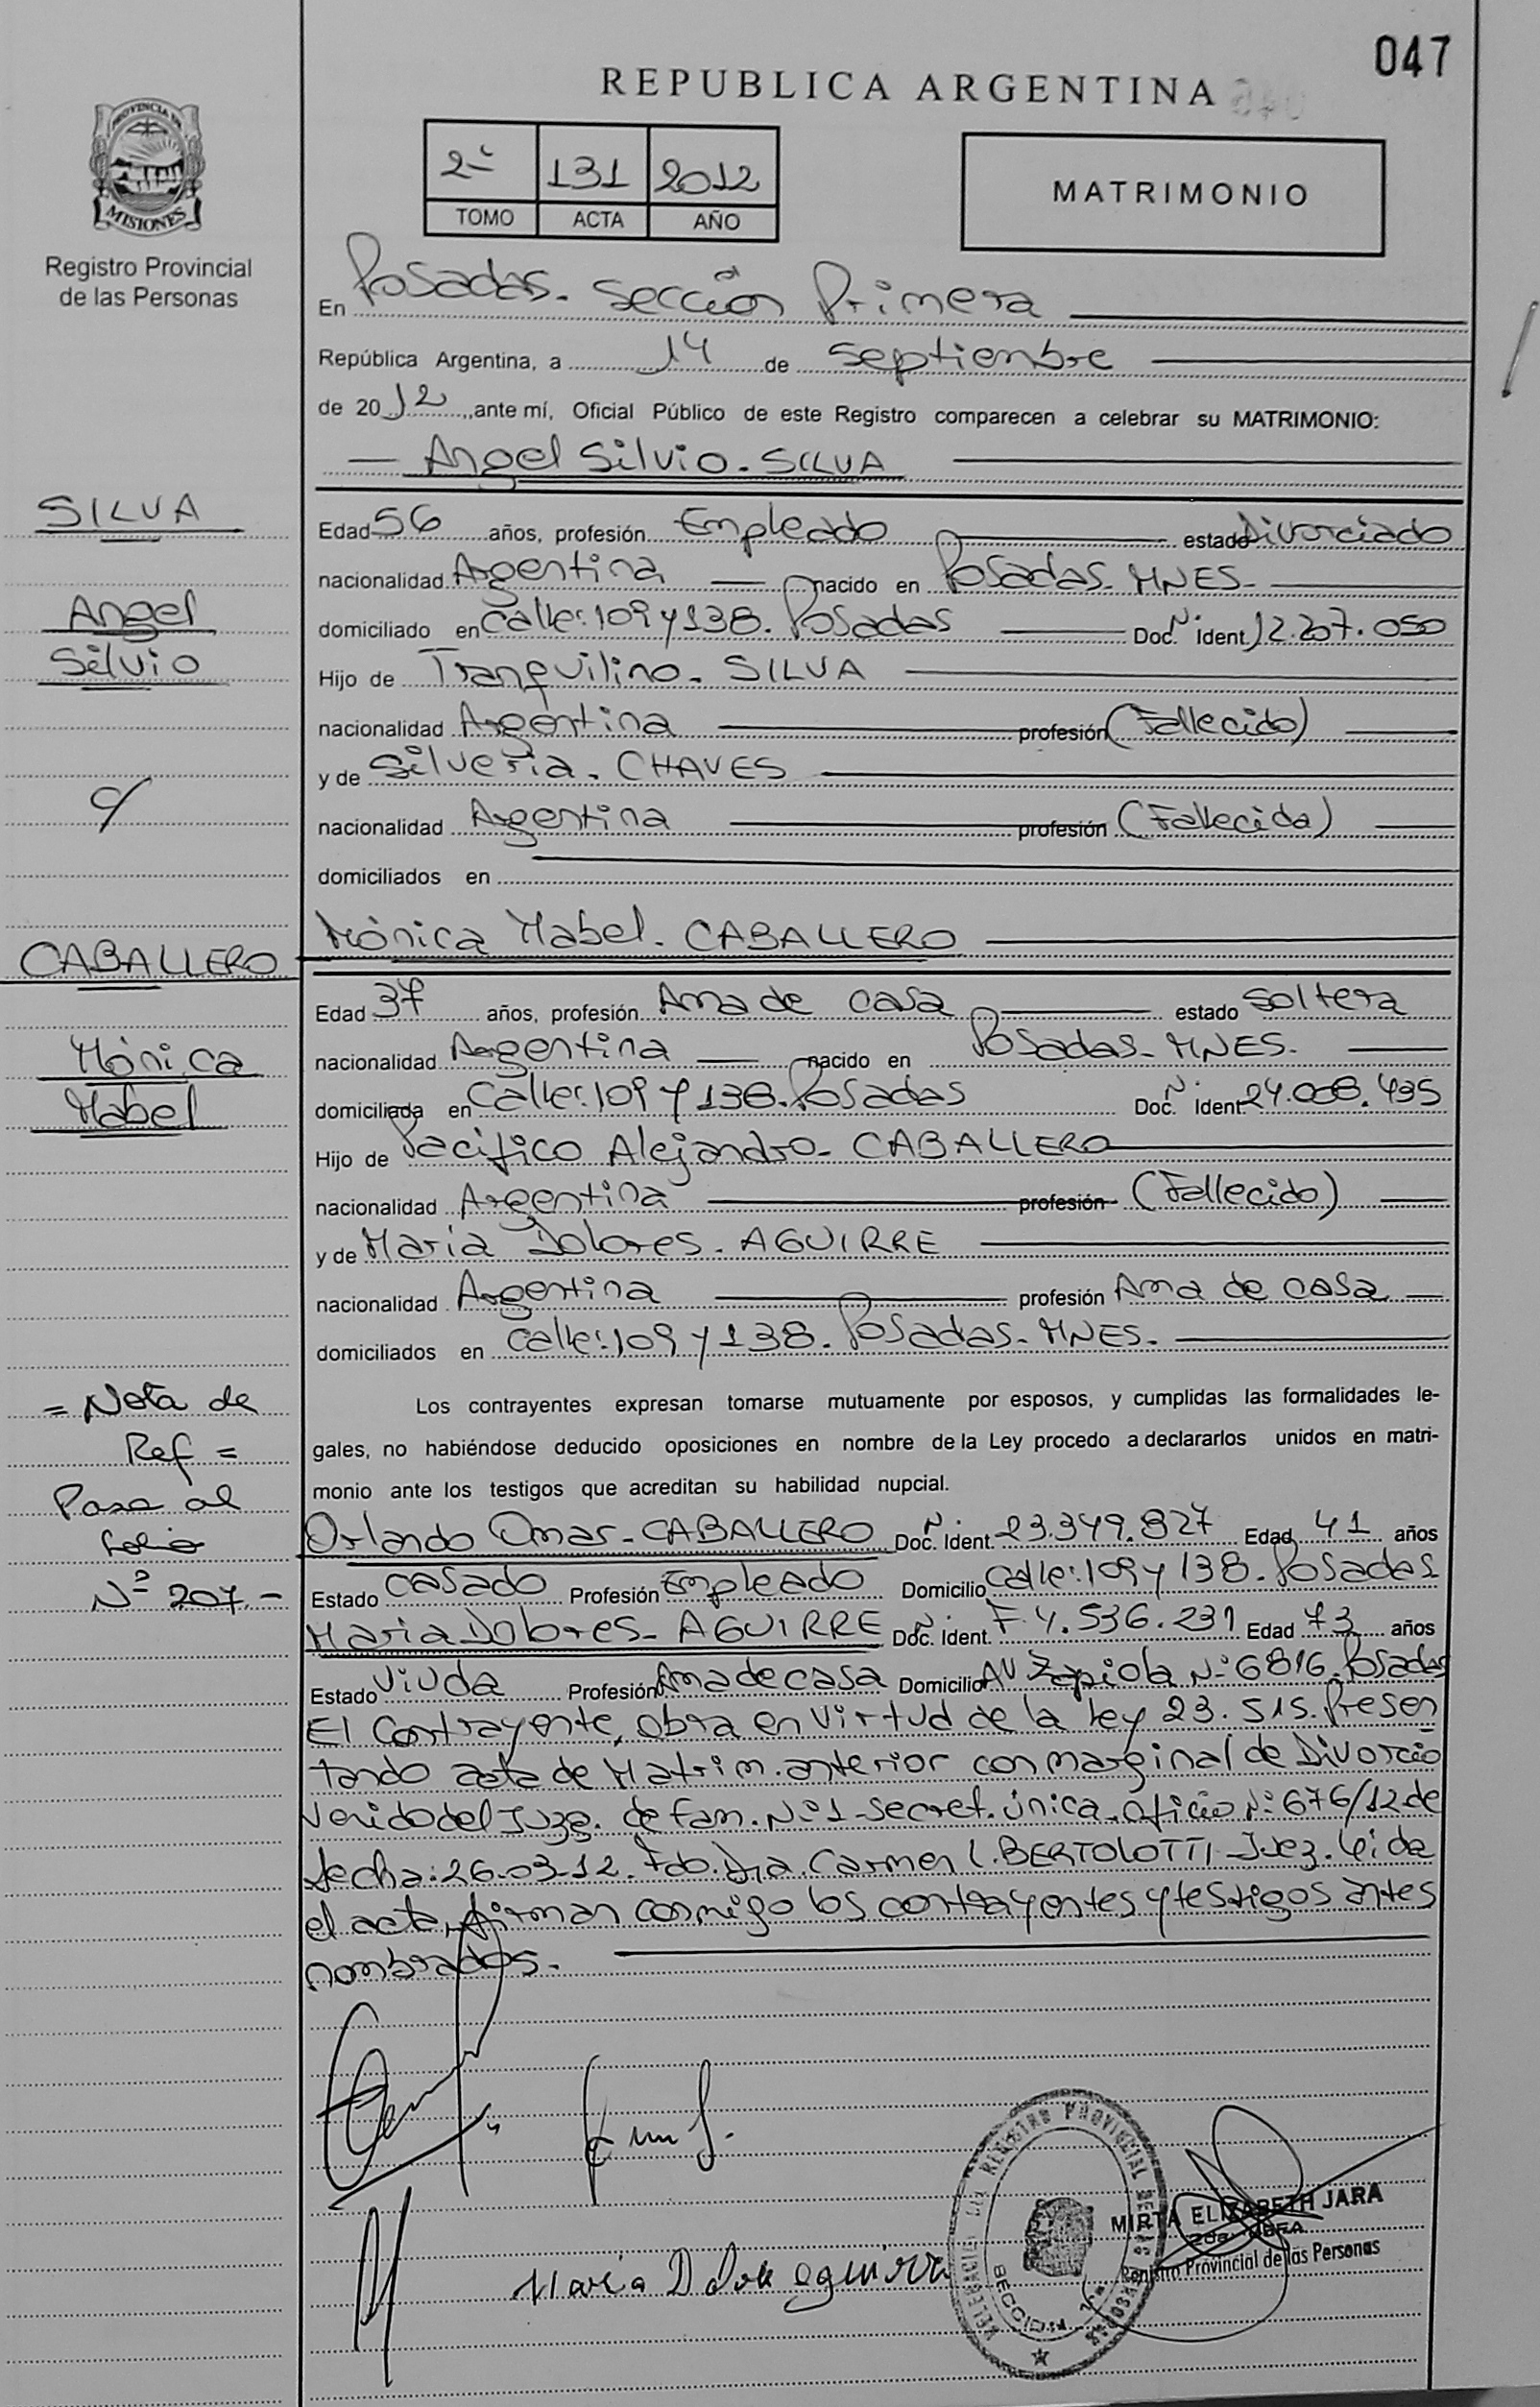 047
REPUBLICA ARGENTINA
PROVINCIA DE
MISIONES
Registro Provincial
de las Personas
2º 131 2012
TOMO ACTA AÑO
MATRIMONIO
En Posadas. Sección Primera
República Argentina, a 14 de Septiembre
de 2012, ante mí, Oficial Público de este Registro comparecen a celebrar su MATRIMONIO:
Angel Silvio. SILVA
SILVA
Edad 56 años, profesión Empleado estado Divorciado
nacionalidad Argentina nacido en Posadas. MNES.
Angel
domiciliado en Calle: 109 y 138. Posadas Doc. Nº Ident 12.207.050
Silvio
Hijo de Tranquilino. SILVA
nacionalidad Argentina profesión (Fallecido)
y de Silveria. CHAVES
c/
nacionalidad Argentina profesión (Fallecida)
domiciliados en
Mónica Mabel. CABALLERO
CABALLERO
Edad 37 años, profesión Ama de casa estado Soltera
Mónica
nacionalidad Argentina nacido en Posadas. MNES.
Mabel
domiciliada en Calle: 109 y 138. Posadas Doc. Nº Ident 24.008.435
Hijo de Pacifico Alejandro. CABALLERO
nacionalidad Argentina profesión (Fallecido)
y de Maria Dolores. AGUIRRE
nacionalidad Argentina profesión Ama de casa
domiciliados en calle: 109 y 138. Posadas. MNES.
= Nota de
Ref =
Pasa al
folio
Nº 207.-
Los contrayentes expresan tomarse mutuamente por esposos, y cumplidas las formalidades le-
gales, no habiéndose deducido oposiciones en nombre de la Ley procedo a declararlos unidos en matri-
monio ante los testigos que acreditan su habilidad nupcial.
Orlando Omar. CABALLERO Doc. Nº Ident. 23.349.827 Edad 41 años
Estado Casado Profesión Empleado Domicilio Calle: 109 y 138. Posadas
Maria Dolores. AGUIRRE Doc. Nº Ident. F 4.536.231 Edad 73 años
Estado Viuda Profesión Ama de casa Domicilio AV Zapiola Nº 6816. Posadas
El Contrayente, obra en virtud de la Ley 23.515. Presen
tando acta de Matrim. anterior con marginal de Divorcio
Venido del Juzg. de Fam. Nº 1 - Secret. única. Oficio Nº 676/12 de
fecha: 26.03.12. Fdo. Dra. Carmen C. BERTOLOTTI Juez. Leida
el acta, firman conmigo los contrayentes y testigos antes
nombrados.
Maria D Aguirre
REGISTRO PROVINCIAL DE LAS PERSONAS
SECCION 1ra
MIRTA ELIZABETH JARA
Registro Provincial de las Personas